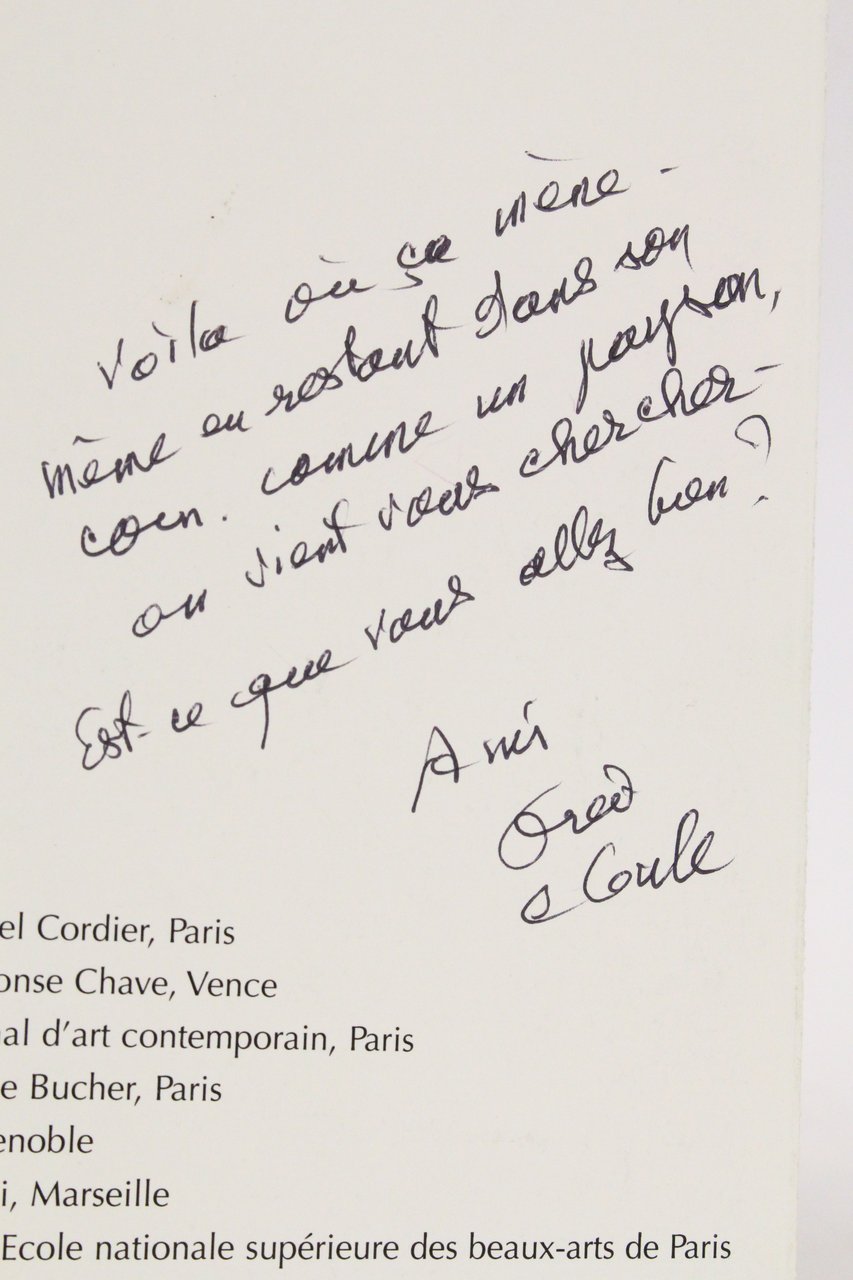 Voilà où ça mène -
même en restant dans son
coin. comme un paysan,
on vient vous chercher -
Est-ce que vous allez bien ?
Ami
Fred
el Cordier, Paris
onse Chave, Vence
al d'art contemporain, Paris
e Bucher, Paris
enoble
i, Marseille
Ecole nationale supérieure des beaux-arts de Paris